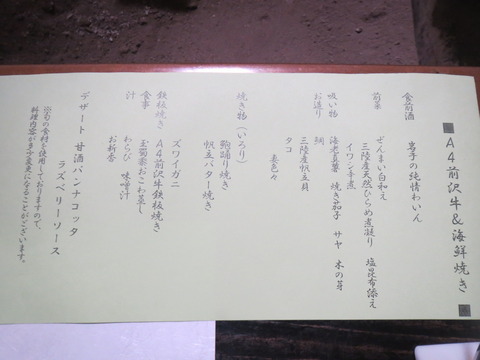 ■A4前沢牛&海鮮焼き■
食前酒
岩手の純情わいん
前菜
ぜんまい白和え
三陸産天然ひらめ煮凝り 塩昆布添え
イワシ辛煮
吸い物
海老真薯 焼き茄子 サヤ 木の芽
お造り
鯛
三陸産帆立貝
タコ
妻色々
焼き物(いろり)
鮑踊り焼き
帆立バター焼き
ズワイガニ
鉄板焼き A4前沢牛鉄板焼き
食事 玉蜀黍おこわ蒸し
汁 わらび 味噌汁
お新香
デザート 甘酒パンナコッタ
ラズベリーソース
※旬の食材を使用しておりますので、
料理内容が多少変更になることがございます。